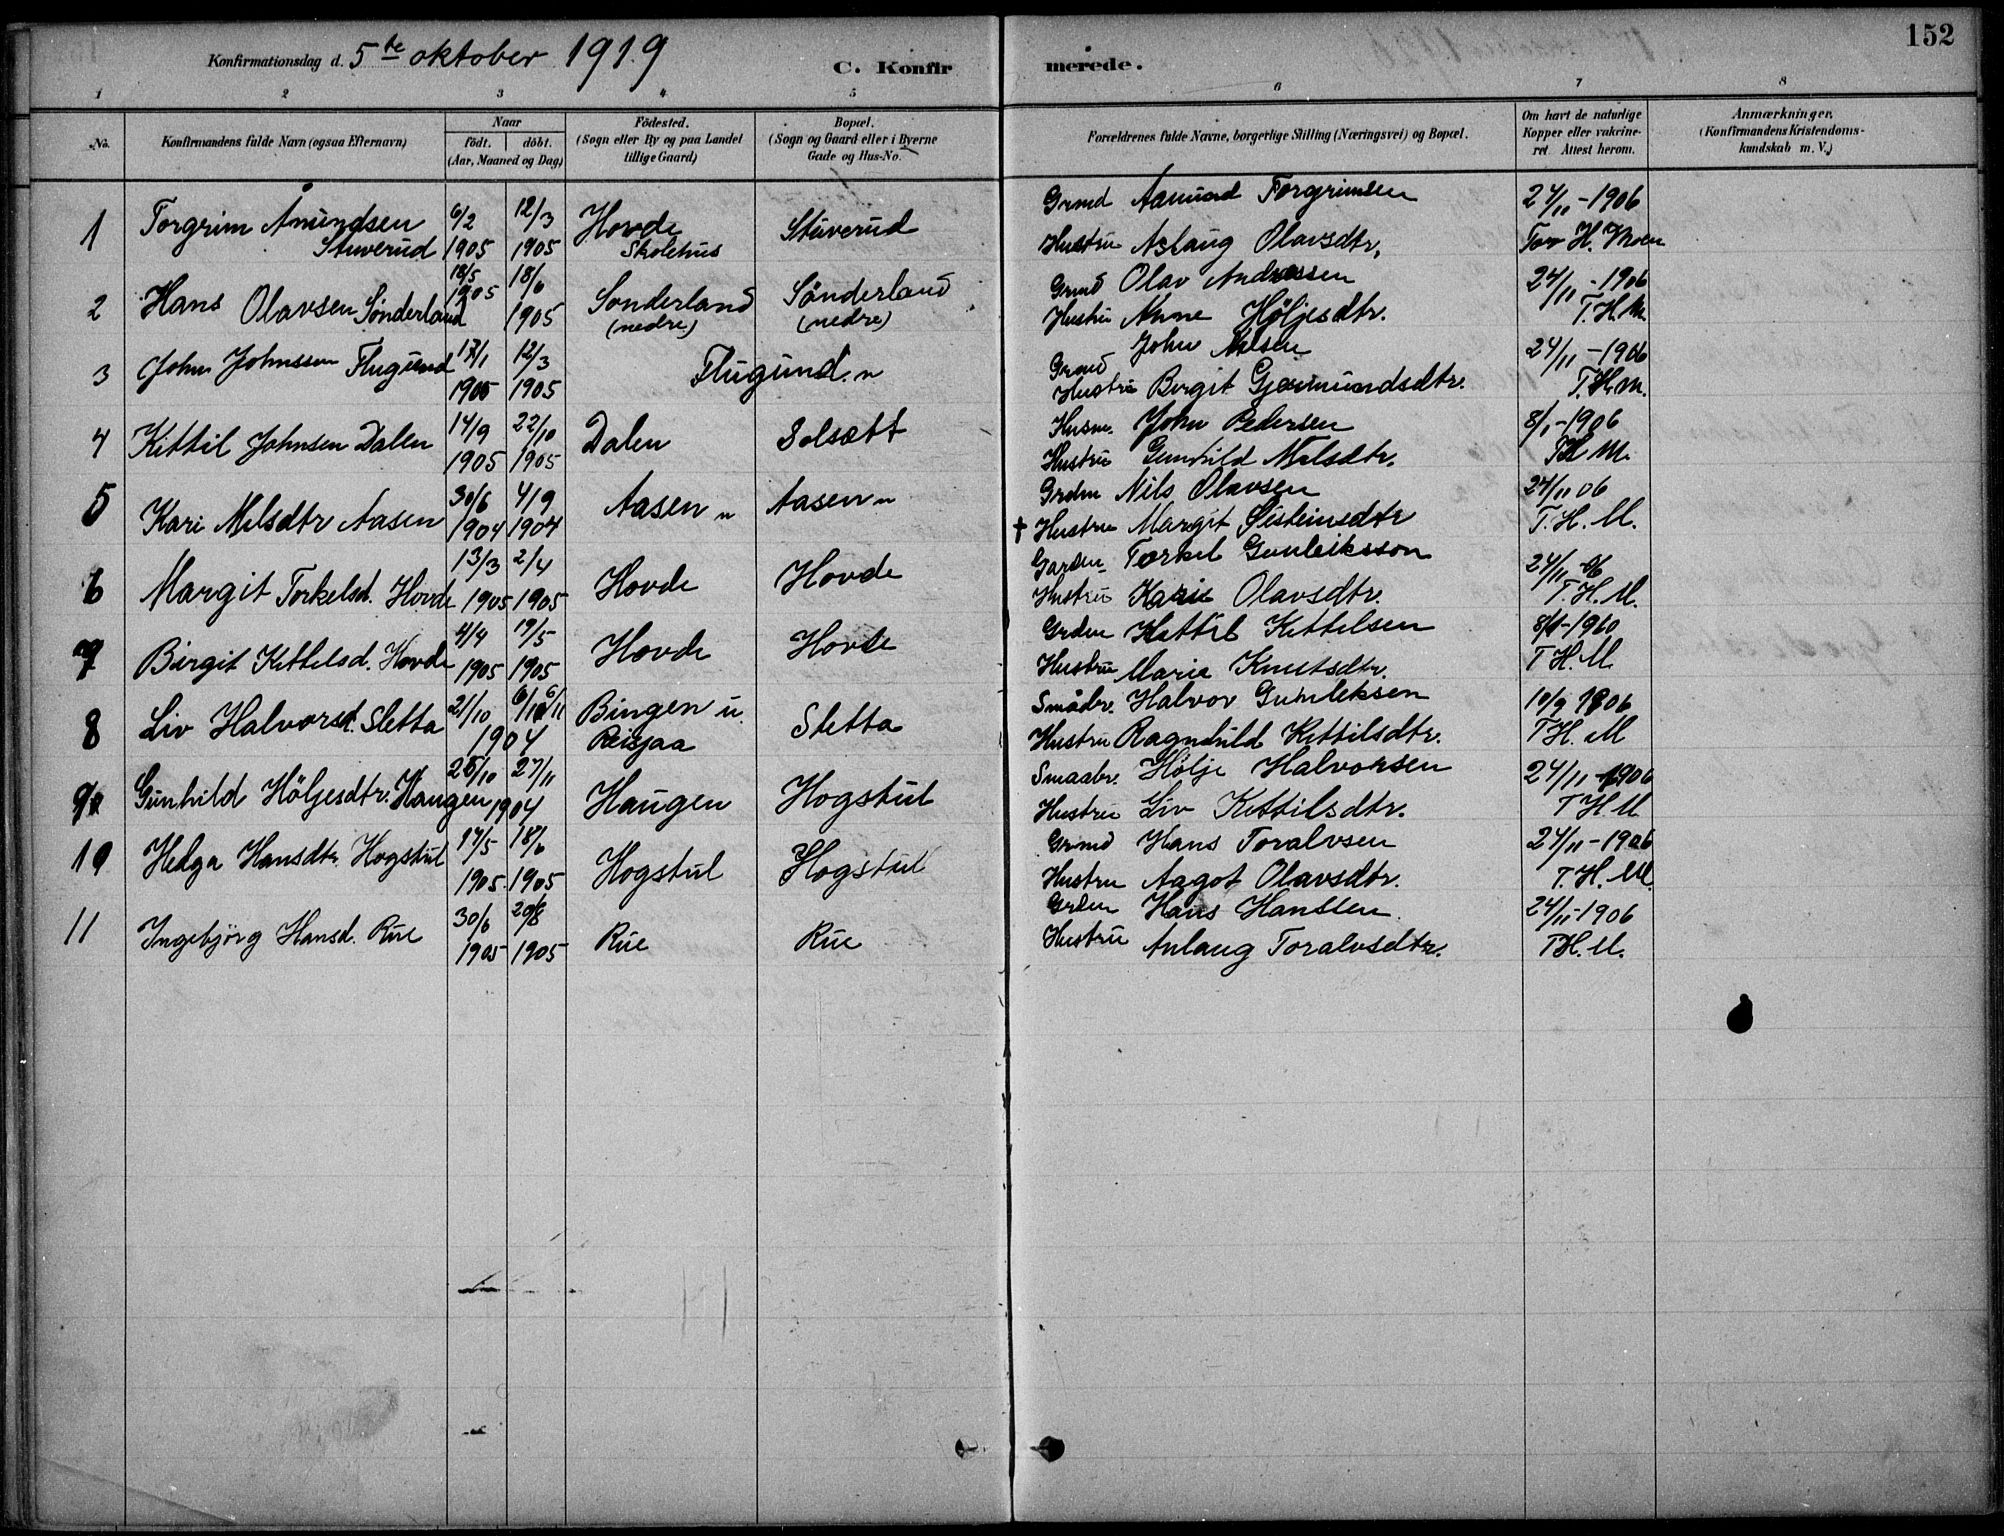 152
Konfirmationsdag d. 5te oktober 1919
C. Konfirmerede.
1 2 3 4 5 6 7 8
No.
Konfirmandens fulde Navn (ogsaa Efternavn)
Naar
födt. döbt.
(Aar, Maaned og Dag)
Födested.
(Sogn eller By og paa Landet
tillige Gaard)
Bopæl.
(Sogn og Gaard eller i Byerne
Gade og Hus-No.
Forældrenes fulde Navne, borgerlige Stilling (Næringsvei) og Bopæl.
Om havt de naturlige
Kopper eller vakcine-
ret. Attest herom.
Anmærkninger.
(Konfirmandens Kristendoms-
kundskab m. V.)
1 Torgrim Åmundsen 6/2 12/3 Hovde Stuverud Grmd Aamund Torgrimsen 24/11-1906
Stuverud 1905 1905 Skolehus Hustru Aslaug Olavsdtr, Tov H. Moen
2 Hans Olavsen Sønderland 18/5 18/6 Sonderland Sönderland Grmd Olav Andressen 24/11-1906
1905 1905 (nedre) (nedre) Hustru Anne Höljesdtr. T.H.M.
3 John Johnssen Flugund 17/1 12/3 Flugund. n Grmd John Nilsen 24/11-1906
1905 1905 Hustru Birgit Gjermundsdtr. T.H.M.
4 Kittil Johnsen Dalen 14/9 22/10 Dalen Solsætt Husm. John Pedersen 8/1-1906
1905 1905 Hustru Gunhild Nilsdtr. TH M.
5 Kari Nilsdtr Aasen 30/6 4/9 Aasen n Aasen n Grdm Nils Olavsen 24/11 06
1904 1904 † Hustru Margit Eisteinsdtr T.H.M.
6 Margit Torkelsd. Hovde 13/3 2/4 Hovde Hovde Garden. Torkel Gunleiksson 24/11-06
1905 1905 Hustru Karie Olavsdtr. T.H.M.
7 Birgit Kittelsd. Hovde 4/4 19/5 Hovde Hovde Grden Kettil Kittelsen
1905 1905 Hustru Marie Knutsdtr. T H.M
8 Liv Halvorsd. Sletta 21/10 6/11 Bingen u. Sletta Småbr. Halvor Gunleksen 10/9 1906
1904 Reisjaa Hustru Ragnhild Kittilsdtr. TH.M
9 Gunhild Höljesdtr. Haugen 25/10 27/11 Haugen Hogstul Smaabr. Hölje Halvorsen 24/11-1906
1904 Hustru Liv Kittilsdtr. T H M
10 Helga Hansdtr. Hogstul 17/5 18/6 Hogstul Hogstul Grmd Hans Toralvsen 24/11-1906
1905. 1905 Hustru Aagot Olavsdtr. T.H.M.
11 Ingebjörg Hansd. Rue 30/6 20/8 Rue Rue Grden Hans Hanssen 24/11-1906
1905 1905 Hustru Anlaug Toralvsdtr. TH.M.